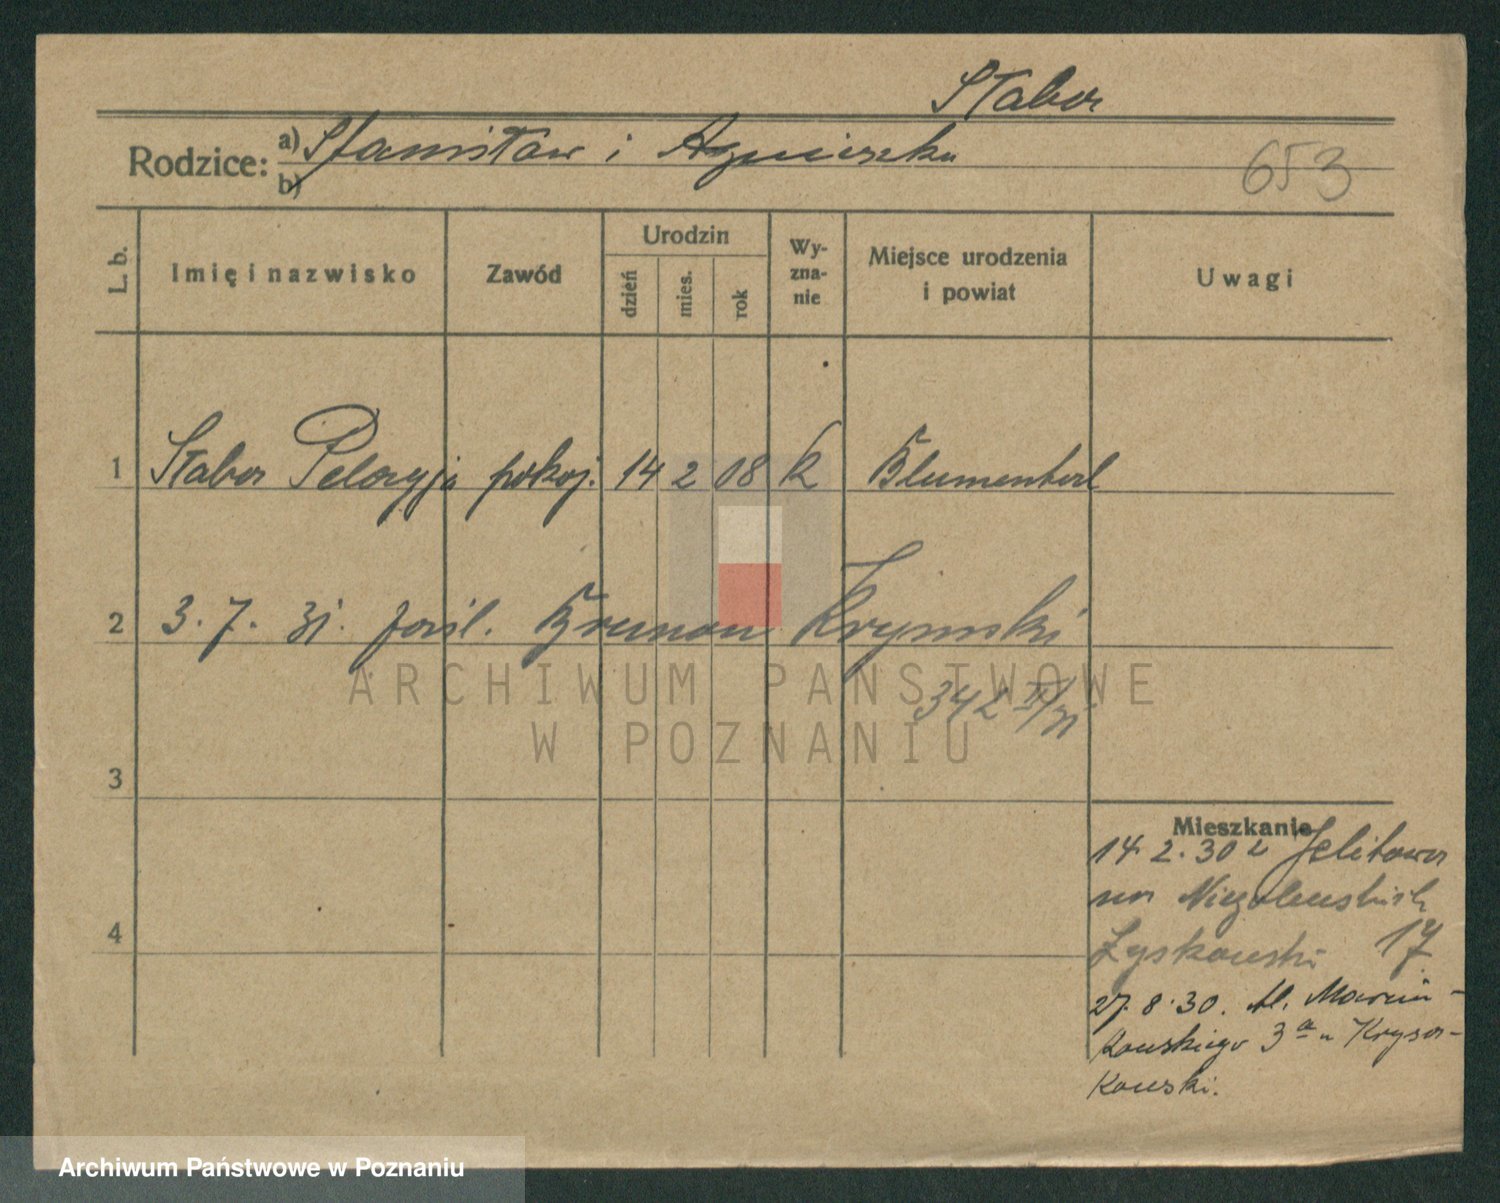 Stabor
Rodzice: a) Stanisław i Agnieszka
b)
653
L. b.
Imię i nazwisko
Zawód
Urodzin
dzień
mies.
rok
Wy-
zna-
nie
Miejsce urodzenia
i powiat
Uwagi
1 Stabor Pelagyja pokoj. 14 2 08 k
2 3. 7. 31. Brunon Krymski
342
3
Mieszkanie
14. 2. 30
4
17
27. 8. 30. Al. Marcin-
kowskiego 3a u
kowski.
ARCHIWUM PAŃSTWOWE
W POZNANIU
Archiwum Państwowe w Poznaniu